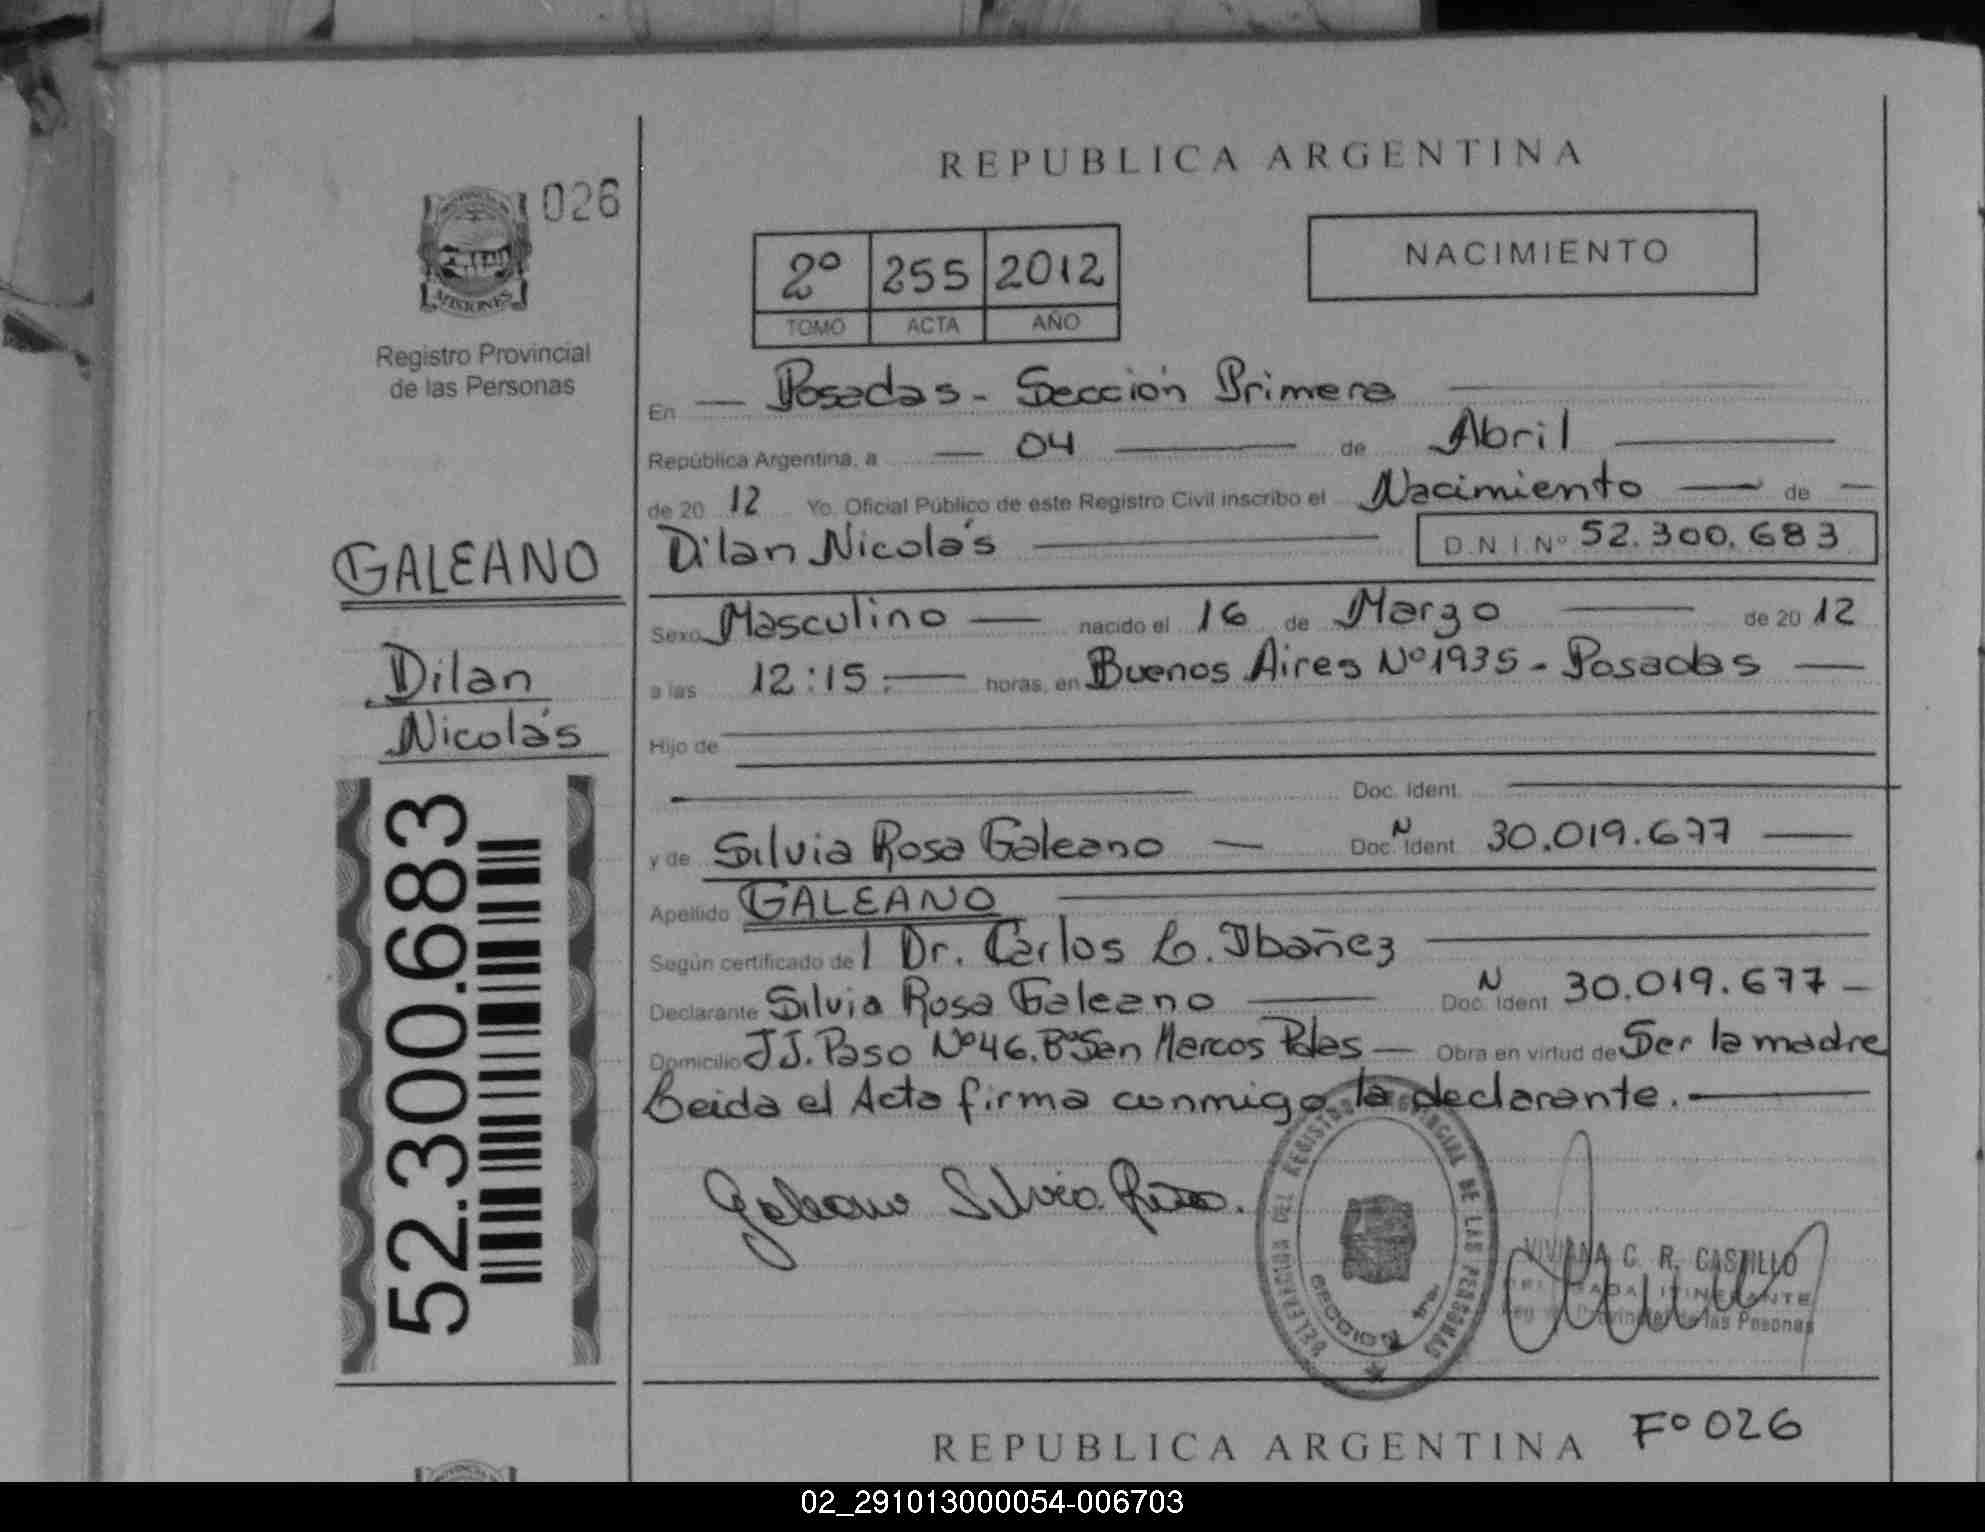 REPUBLICA ARGENTINA
026
MISIONES
Registro Provincial
de las Personas
2º 255 2012
TOMO ACTA AÑO
NACIMIENTO
En — Posadas - Sección Primera
República Argentina, a — 04 — de Abril
de 20 12 Yo, Oficial Público de este Registro Civil inscribo el Nacimiento — de —
Dilan Nicolás — D.N.I. Nº 52.300.683
GALEANO
Dilan
Nicolás
52.300.683
Sexo Masculino — nacido el 16 de Marzo — de 20 12
a las 12:15.— horas, en Buenos Aires Nº 1935 - Posadas —
Hijo de
Doc. Ident.
y de Silvia Rosa Galeano — Doc. N Ident. 30.019.677 —
Apellido GALEANO
Según certificado de l Dr. Carlos L. Ibañez
Declarante Silvia Rosa Galeano — Doc. N Ident 30.019.677 —
Domicilio J.J. Paso Nº 46. Bº San Marcos Pdas — Obra en virtud de Ser la madre
Leida el Acta firma conmigo la declarante. —
Galeano Silvia Rosa.
DELEGACION DEL REGISTRO PROVINCIAL DE LAS PERSONAS
SECCION 1ra.
VIVIANA C. R. CASTILLO
DELEGADA ITINERANTE
Reg. Provincial de las Pesonas
REPUBLICA ARGENTINA
Fº 026
02_291013000054-006703